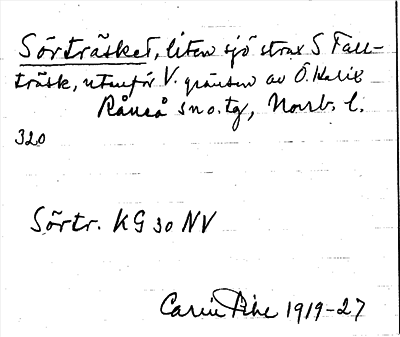 Sörträsket, liten sjö strax S Tall-
träsk, utanför V. gränsen av Ö. Kalix
Råneå sn o. tg, Norrb. l.
320
Sörtr. KG 30 NV
Carin Pihl 1919-27